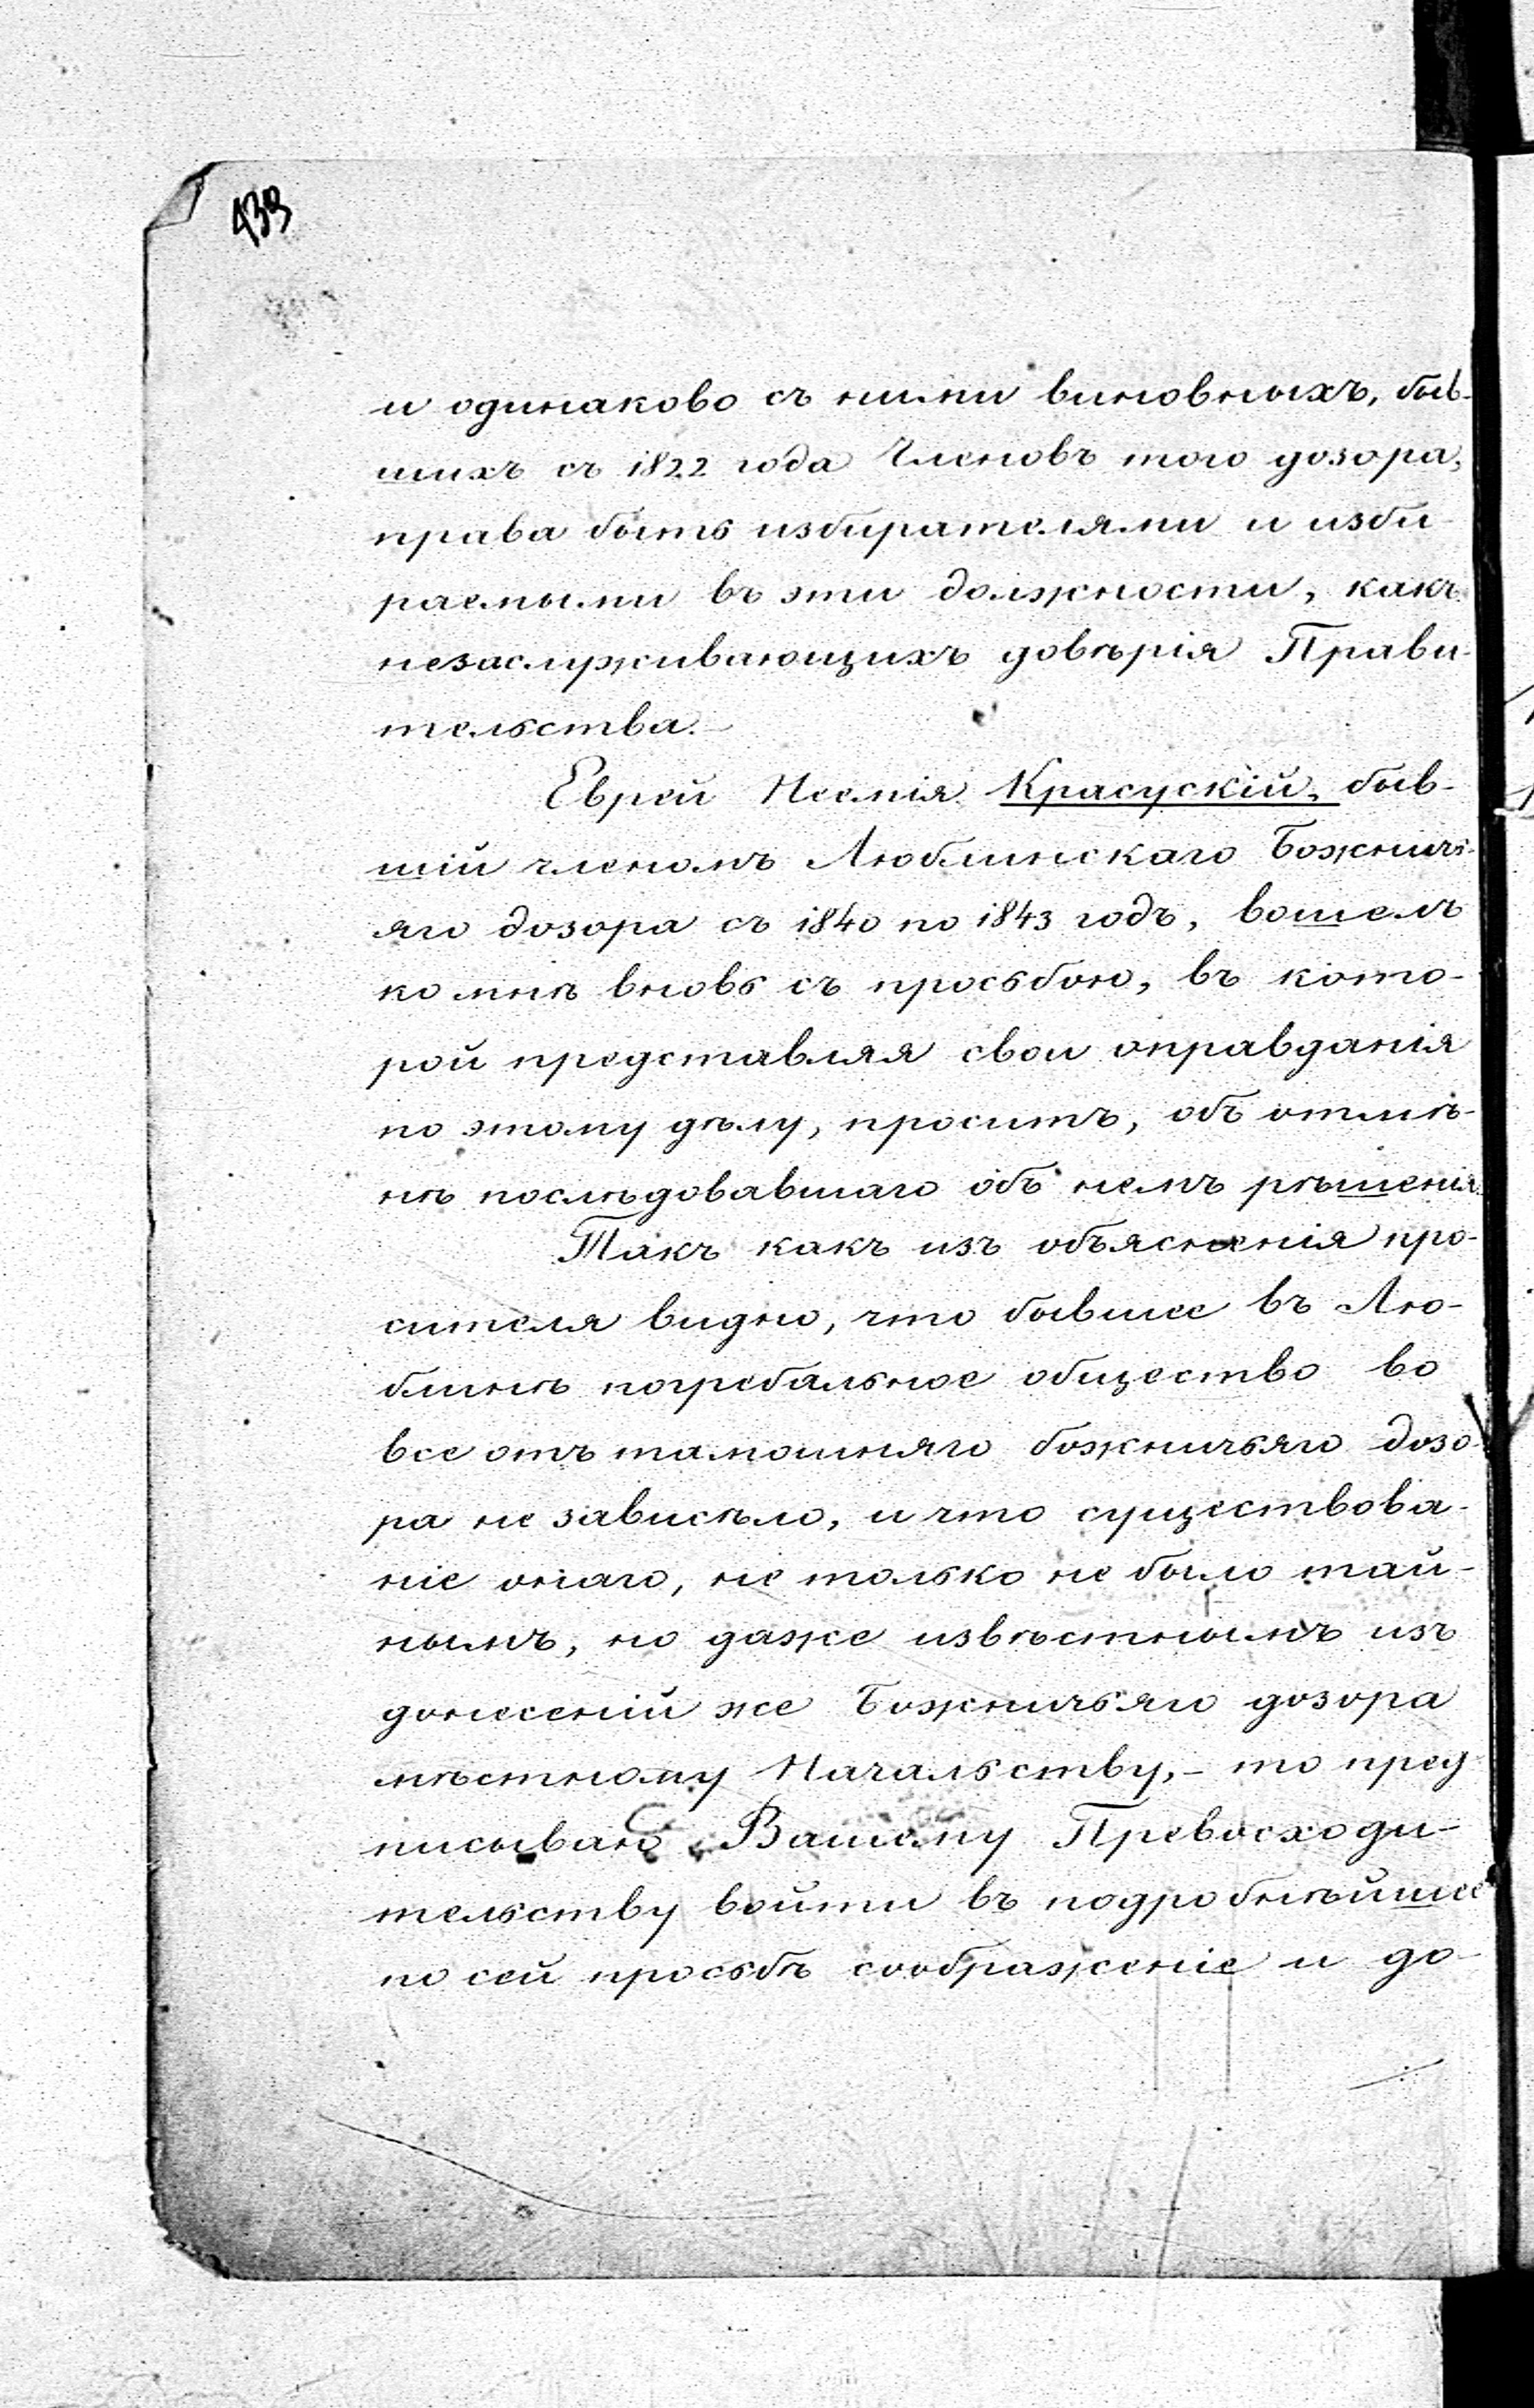 439
и одинаково съ ними виновныхъ, быв-
шихъ съ 1822 года Членовъ того дозора,
права быть избирателями и изби-
раемыми въ эти должности, какъ
незаслуживающихъ довѣрія Прави-
тельства.
Еврей Неемія Красускій, быв-
шій членомъ Люблинскаго Божничь-
яго дозора съ 1840 по 1843 годъ, вошелъ
ко мнѣ вновь съ просьбою, въ кото-
рой представляя свои оправданія
по этому дѣлу, проситъ, объ отмѣ-
нѣ послѣдовавшаго объ немъ рѣшенія.
Такъ какъ изъ объясненія про-
сителя видно, что бывшее въ Лю-
блинѣ погребальное общество во
все отъ тамошняго божничьяго дозо-
ра не зависѣло, и что существова-
ніе онаго, не только не было тай-
нымъ, но даже извѣстнымъ изъ
донесеній же Божничьяго дозора
мѣстному Начальству,- то пред
писываю Вашему Превосходи-
тельству войти въ подробнѣйшее
по сей просьбѣ соображеніе и до-